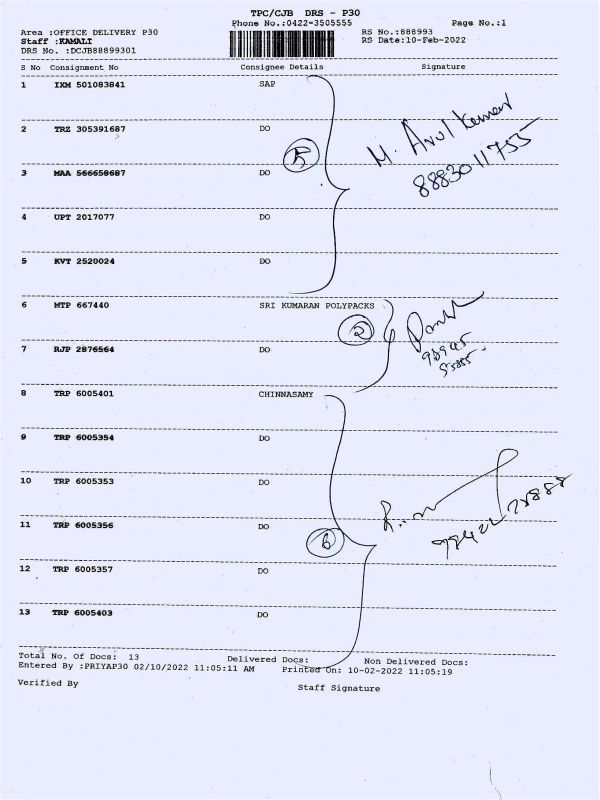 TPC/CJB DRS - P30
Phone No.:0422-3505555 Page No.:1
Area :OFFICE DELIVERY P30 RS No.:888993
Staff :KAMALI RS Date:10-Feb-2022
DRS No. :DCJB88899301
S No Consignment No Consignee Details Signature
1 IXM 501083841 SAP
2 TRZ 305391687 DO
5 M. Arul Kumar
3 MAA 566658687 DO 8883011755
4 UPT 2017077 DO
5 KVT 2520024 DO
6 MTP 667440 SRI KUMARAN POLYPACKS
2
7 RJP 2876564 DO
8 TRP 6005401 CHINNASAMY
9 TRP 6005354 DO
10 TRP 6005353 DO
11 TRP 6005356 DO
6
12 TRP 6005357 DO
13 TRP 6005403 DO
Total No. Of Docs: 13 Delivered Docs: Non Delivered Docs:
Entered By :PRIYAP30 02/10/2022 11:05:11 AM Printed On: 10-02-2022 11:05:19
Verified By Staff Signature